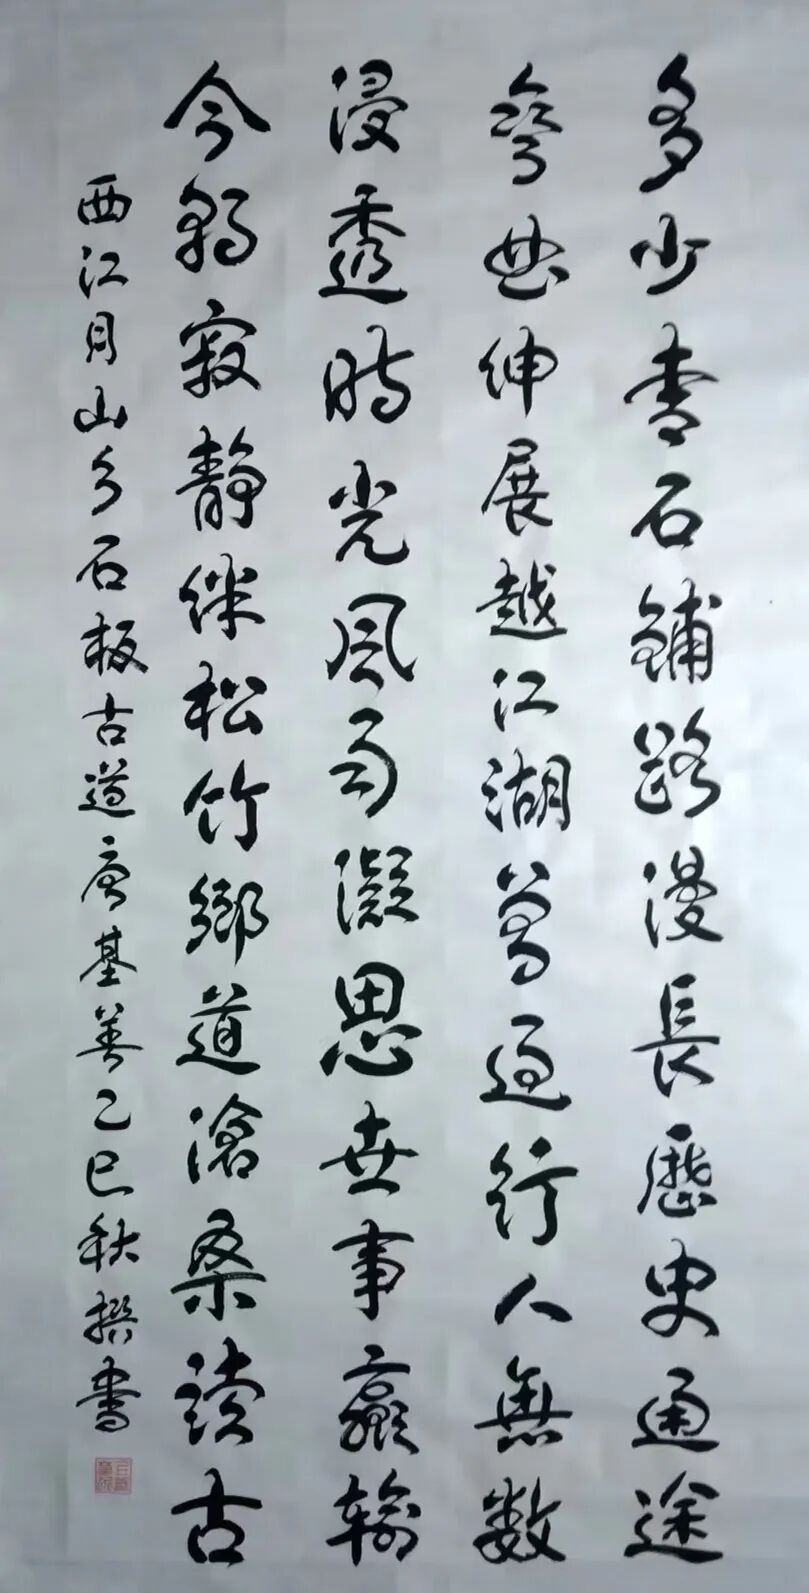 多少青石鋪路漫長歷史通途
彎曲伸展越江湖曾過行人無数
浸透時光風雨凝思世事贏輸
今朝寂靜伴松竹鄉道滄桑讀古
西江月山乡石板古道唐基善乙巳秋撰書